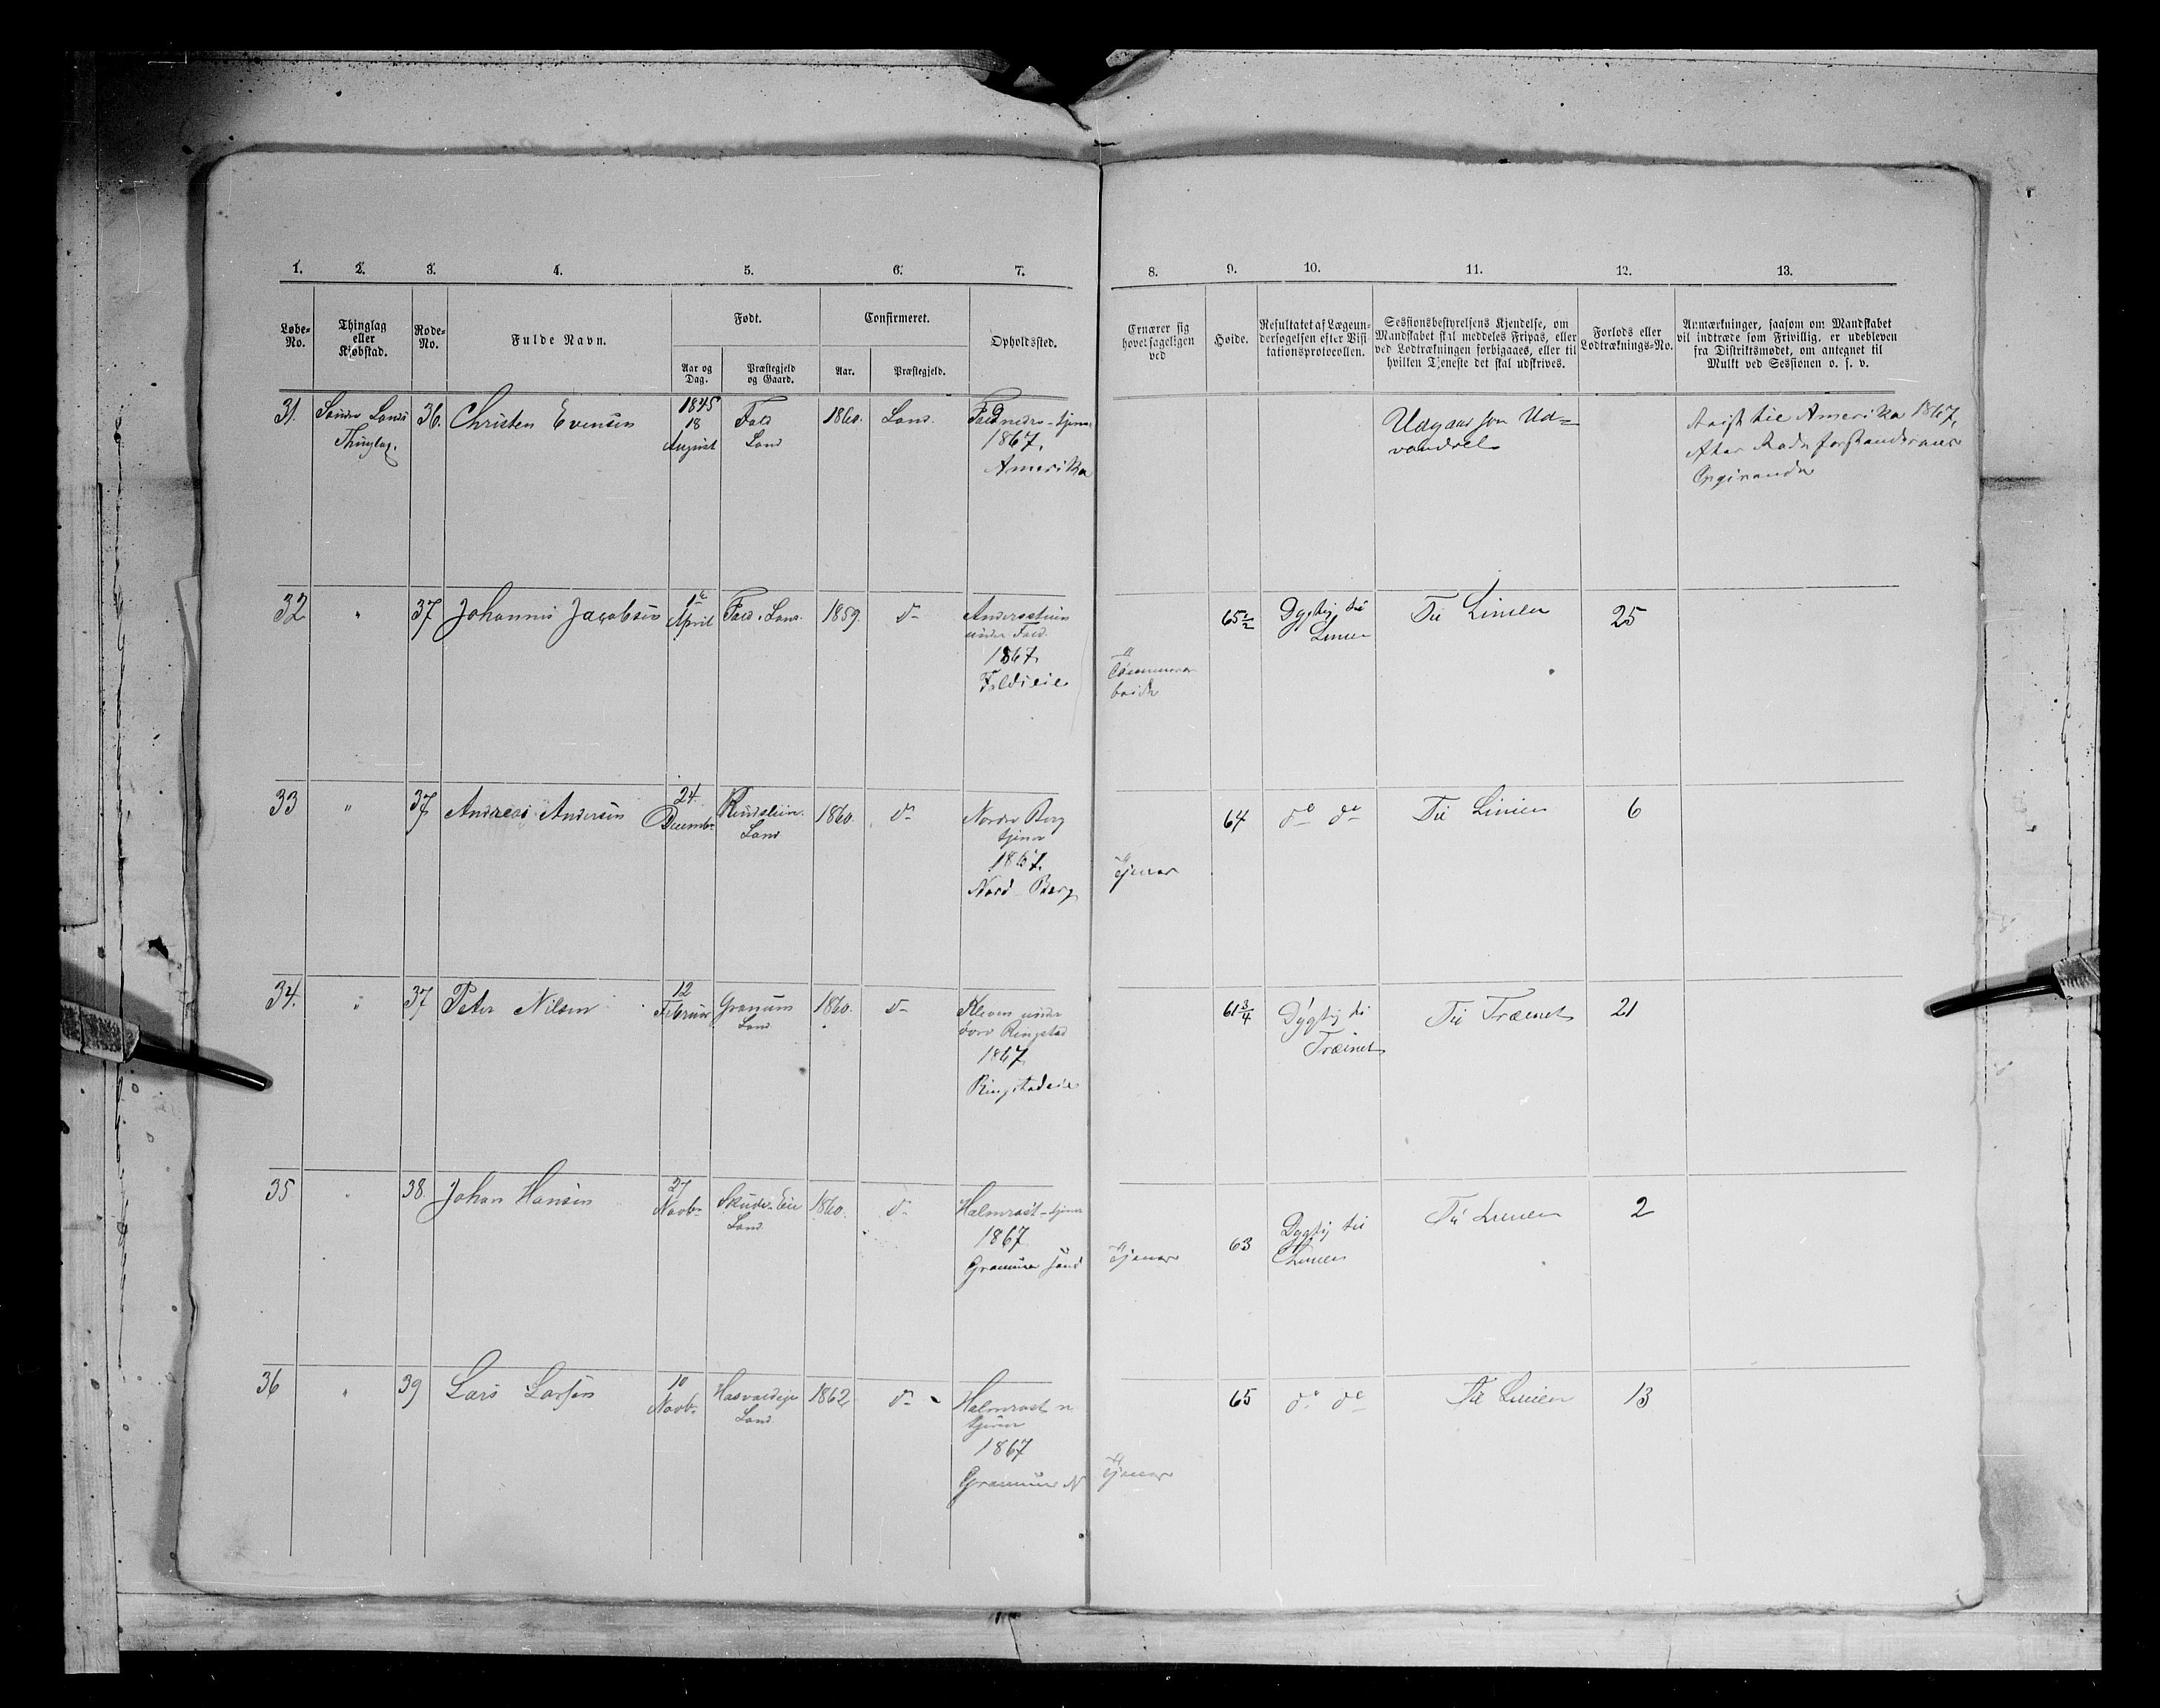 1. 2. 3. 4. 5. 6. 7. 8. 9. 10. 11. 12. 13.
Løbe-No.
Thinglag eller Kjøbstad.
Rode-No.
Fulde Navn.
Født.
Aar og Dag.
Præstegjeld og Gaard.
Confirmeret.
Aar.
Præstegjeld.
Opholdssted.
Ernærer sig hovedsageligen ved
Høide.
Resultatet af Lægeundersøgelsen efter Visitationsprotocollen.
Sessionsbestyrelsens Kjendelse, om Mandskabet skal meddeles Fripas, eller ved Lodtrækningen forbigaaes, eller til hvilken Tjeneste det skal udskrives.
Forlods eller Lodtræknings-No.
Anmærkninger, saasom om Mandskabet vil indtræde som Frivillig, er udebleven fra Distriktsmødet, om antegnet til Mulkt ved Sessionen o. s. v.
31. Søndre Lands Thinglag. 36. Christen Evensen 1845 18 August Fald Land 1860. Land. Fald nedre - tjener
1867.
Amerika
Udgaar som Ud=
vandret
Reist til Amerika 1867,
efter Rodeforstanderens
Opgivende
32 " 37 Johannes Jacobsen April Fald. Land. 1859. do
under Fald.
1867.
Faldseie
65½ Dygtig til Linien Til Linien 25
33 " 37 Andreas Andersen 24 Decembr Land 1860. do Nordre Berg
tjener
1867.
Nord Berg
Tjener
64 do do Til Linien 6
34. " 37 Peter Nilsen 12 Februar Granum Land 1860. do Kleven under
Ringstad
1867
Ringstadeie
61¾ Dygtig til Trainet Til Trainet 21
35 " 38. Johan Hansen 27 Novbr Eie Land 1860. do Halmrast - tjener
1867
Tjener
63 Dygtig til Linien Til Linien 2
36 " 39 Lars Larsen 10 Novbr Land 1862. do Halmrast n.
tjener
1867
Tjener
65 do do Til Linien 13